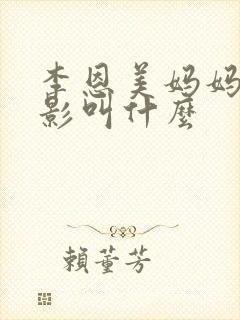 李恩美妈妈
影叫什麼
賴董芳